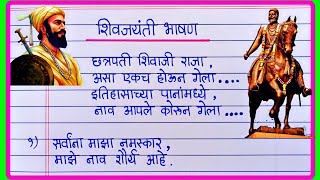 शिवजयंती भाषण
छत्रपती शिवाजी राजा ,
असा एकच होऊन गेला ....
इतिहासाच्या पानांमध्ये ,
नाव आपले कोरून गेला ....
१) सर्वांना माझा नमस्कार ,
माझे नाव शौर्य आहे .